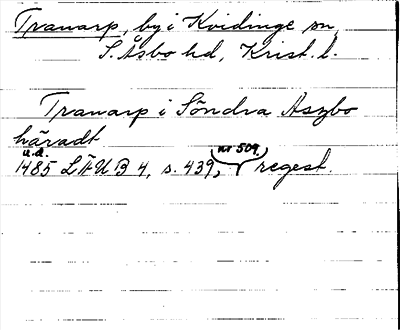 Tranarp, by i Kvidinge sn,
S. Åsbo hd, Krist. l.
Tranarp i Söndra Aszbo
häradt
u.d.
1485 LÄUB 4, s. 439, nr 509. regest.